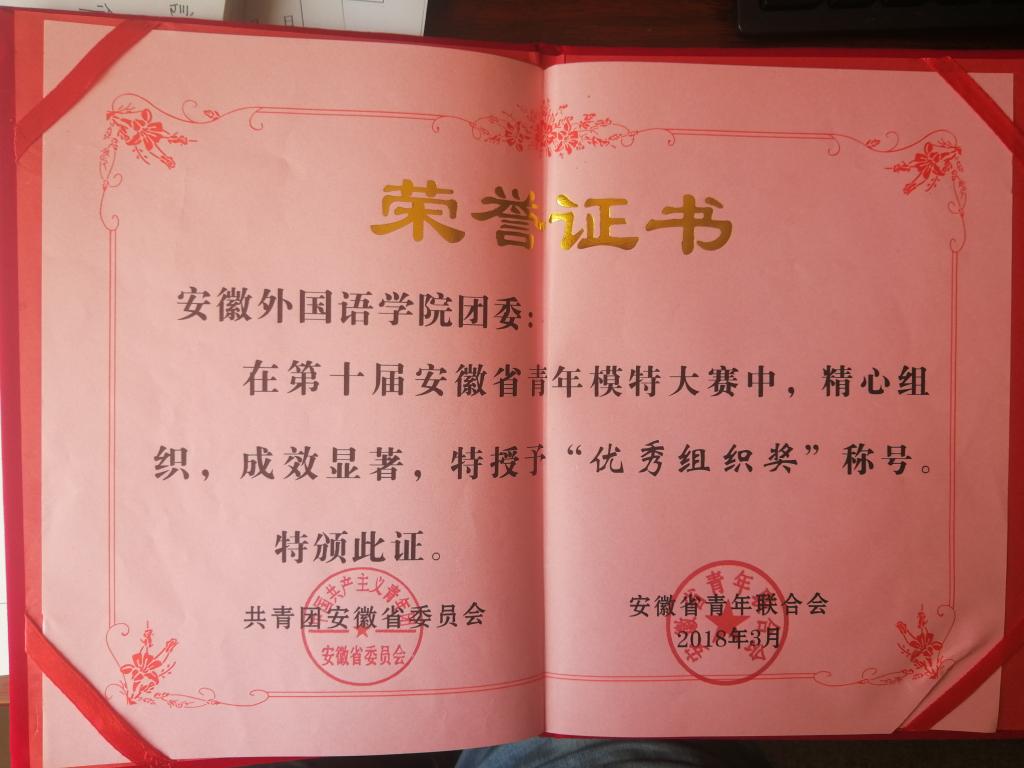 荣誉证书
安徽外国语学院团委：
在第十届安徽省青年模特大赛中，精心组
织，成效显著，特授予“优秀组织奖”称号。
特颁此证。
共青团安徽省委员会
中国共产主义青年团
安徽省委员会
安徽省青年联合会
2018年3月
安徽省青年联合会